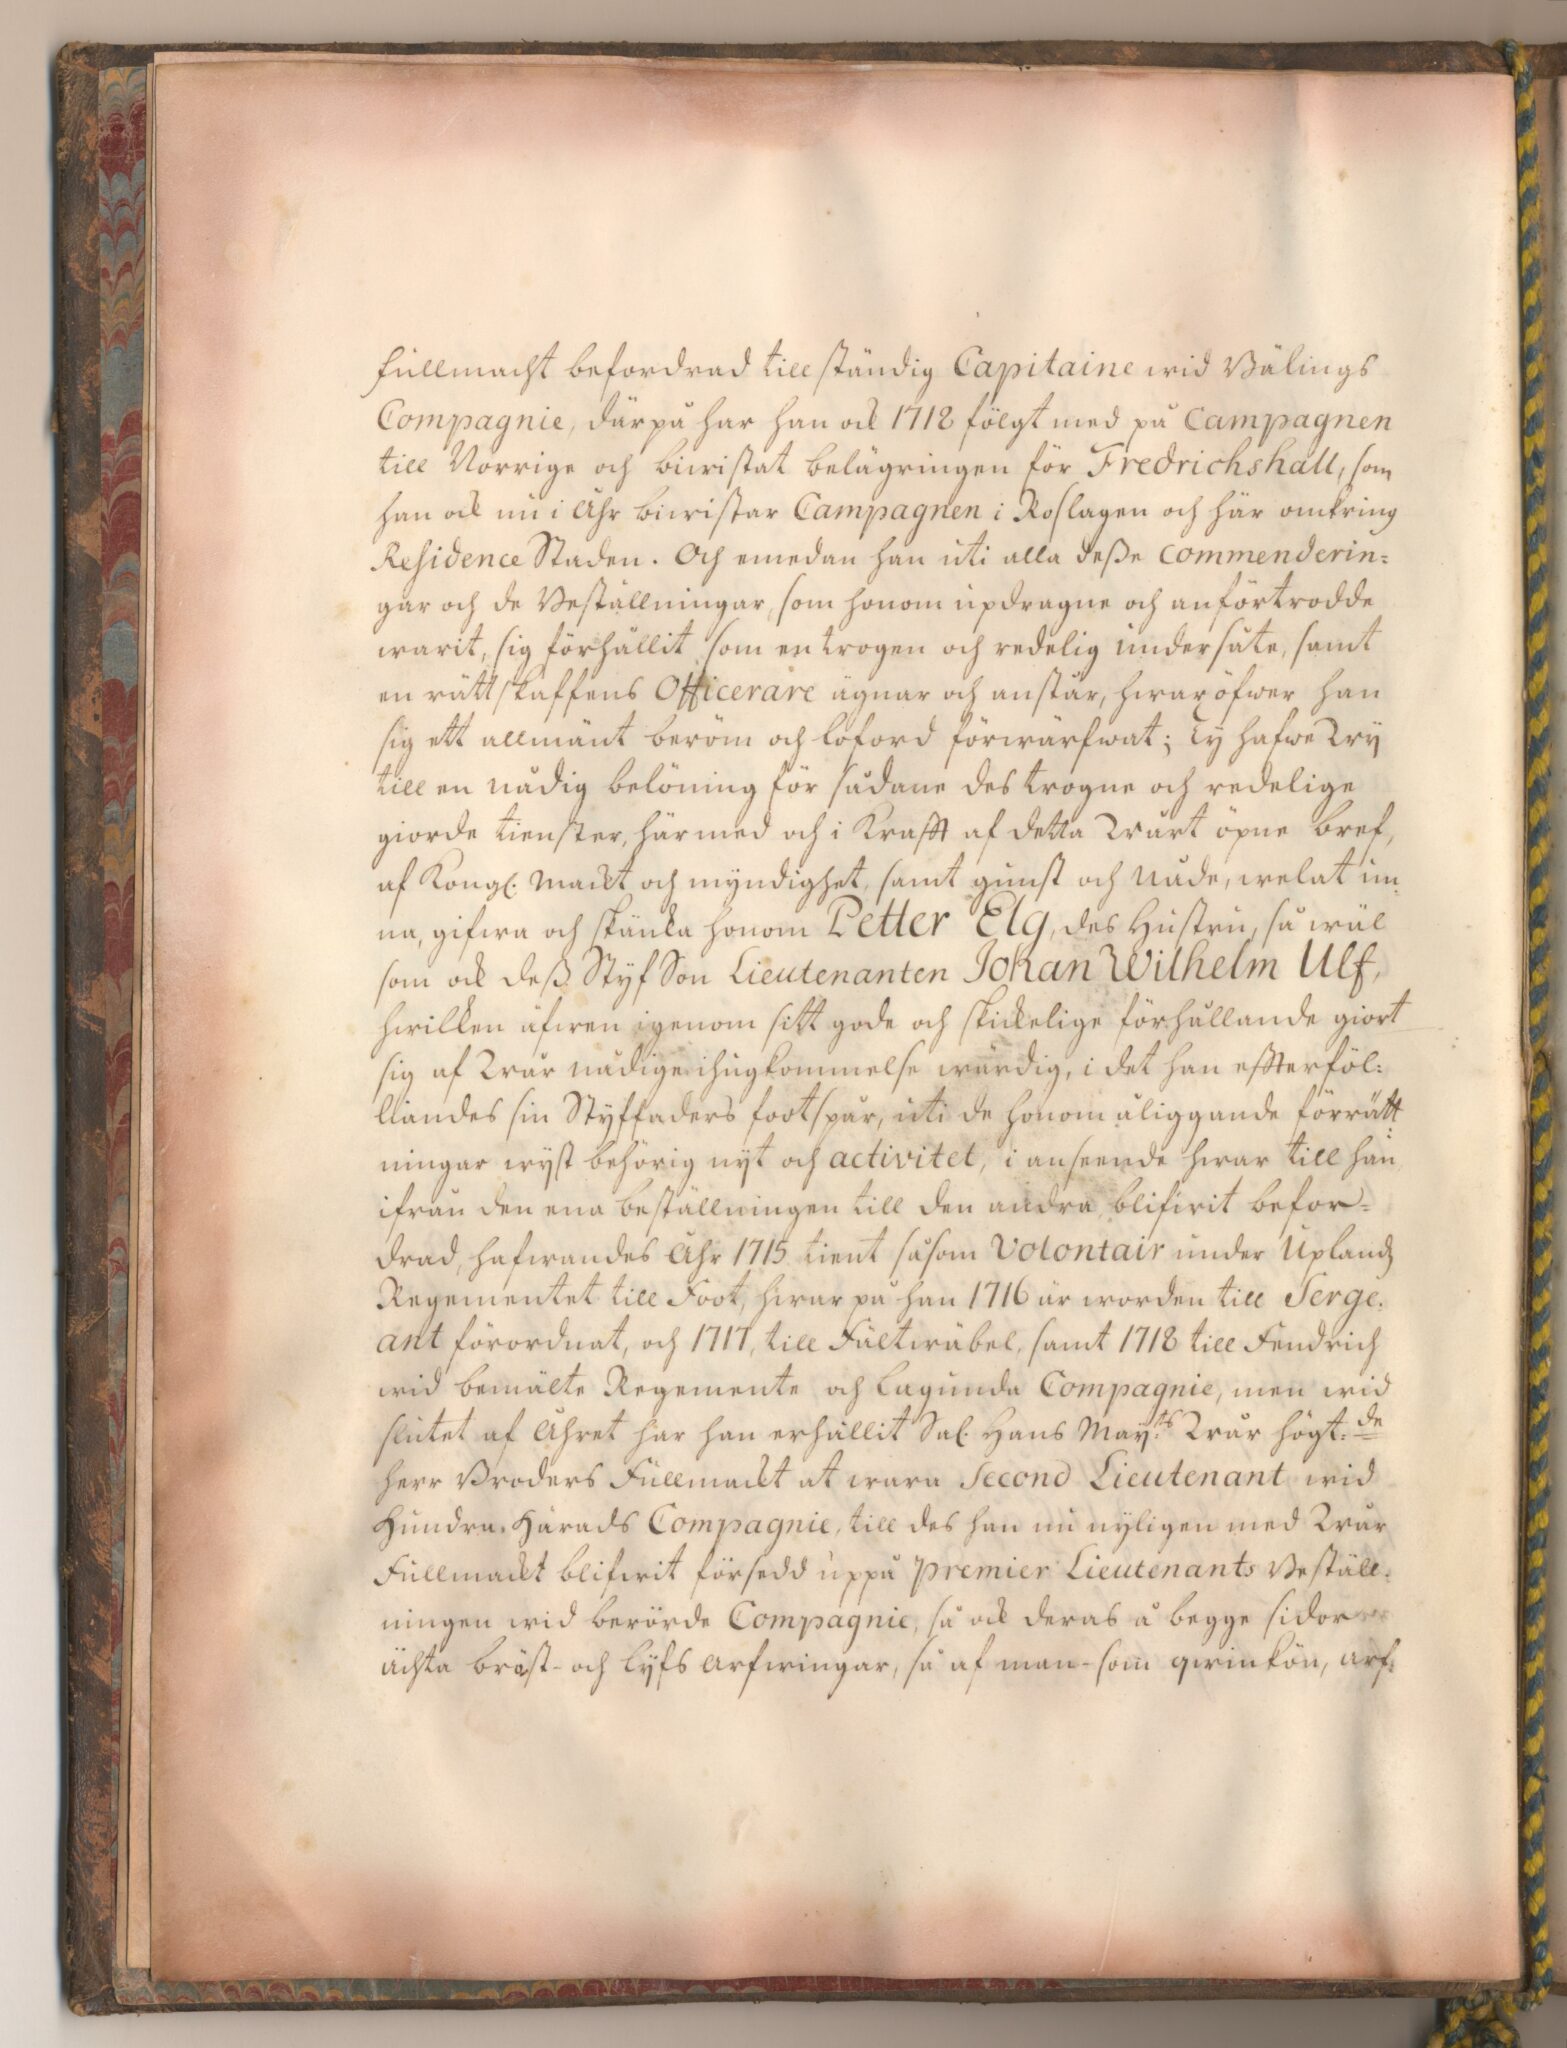 fullmacht befordrad till ständig Capitaine wid Bälings
Compagnie, därpå har han ock 1718 fölgt med på Campagnen
till Norrige och biwistat belägringen för Fredrichshall, som
han ock nu i Åhr biwistar Campagnen i Roslagen och här omkring
Residence Staden. Och emedan han uti alla deße Commenderin=
gar och de Beställningar, som honom updragne och anförtrodde
warit, sig förhållit som en trogen och redelig undersåte, samt
en rättskaffens Officerare ägnar och anstår, hwaröfwer han
sig ett allmänt beröm och loford förwärfwat; Ty hafwe Wy
till en nådig belöning för sådane des trogne och redelige
giorde tienster, härmed och i Krafft af detta Wårt öpne bref,
af Kongl. Mackt och myndighet, samt gunst och nåde, welat un-
na, gifwa och skänka honom Petter Elg, des Hustru, så wäl
som ock deß Styf Son Lieutenanten Johan Wilhelm Ulf,
hwilken äfwen igenom sitt gode och skickelige förhållande giort
sig af Wår nådige ihugkommelse wärdig, i det han effterföl=
liandes sin Styffaders footspår, uti de honom åliggande förrätt-
ningar wyst behörig nyt och activitet, i anseende hwar till han
ifrån den ena beställningen till den andra blifwit befor=
drad, hafwandes Åhr 1715 tient såsom Volontair under Uplands
Regementet till Foot, hwar på han 1716 är worden till Serge-
ant förordnat, och 1717, till Fältwäbel, samt 1718 till Fendrich
wid bemälte Regemente och Lagunda Compagnie, men wid
slutet af Åhret har han erhållit Sal. Hans May:ts Wår högt:de
herr Broders Fullmackt at wara Second Lieutenant wid
Hundra Härads Compagnie, till des han nu nyligen med Wår
Fullmackt blifwit försedd uppå Premier Lieutenants Beställ-
ningen wid berörde Compagnie, så ock deras å begge sidor
ächta bröst- och lyfs arfwingar, så af man- som qwinkön, arf-